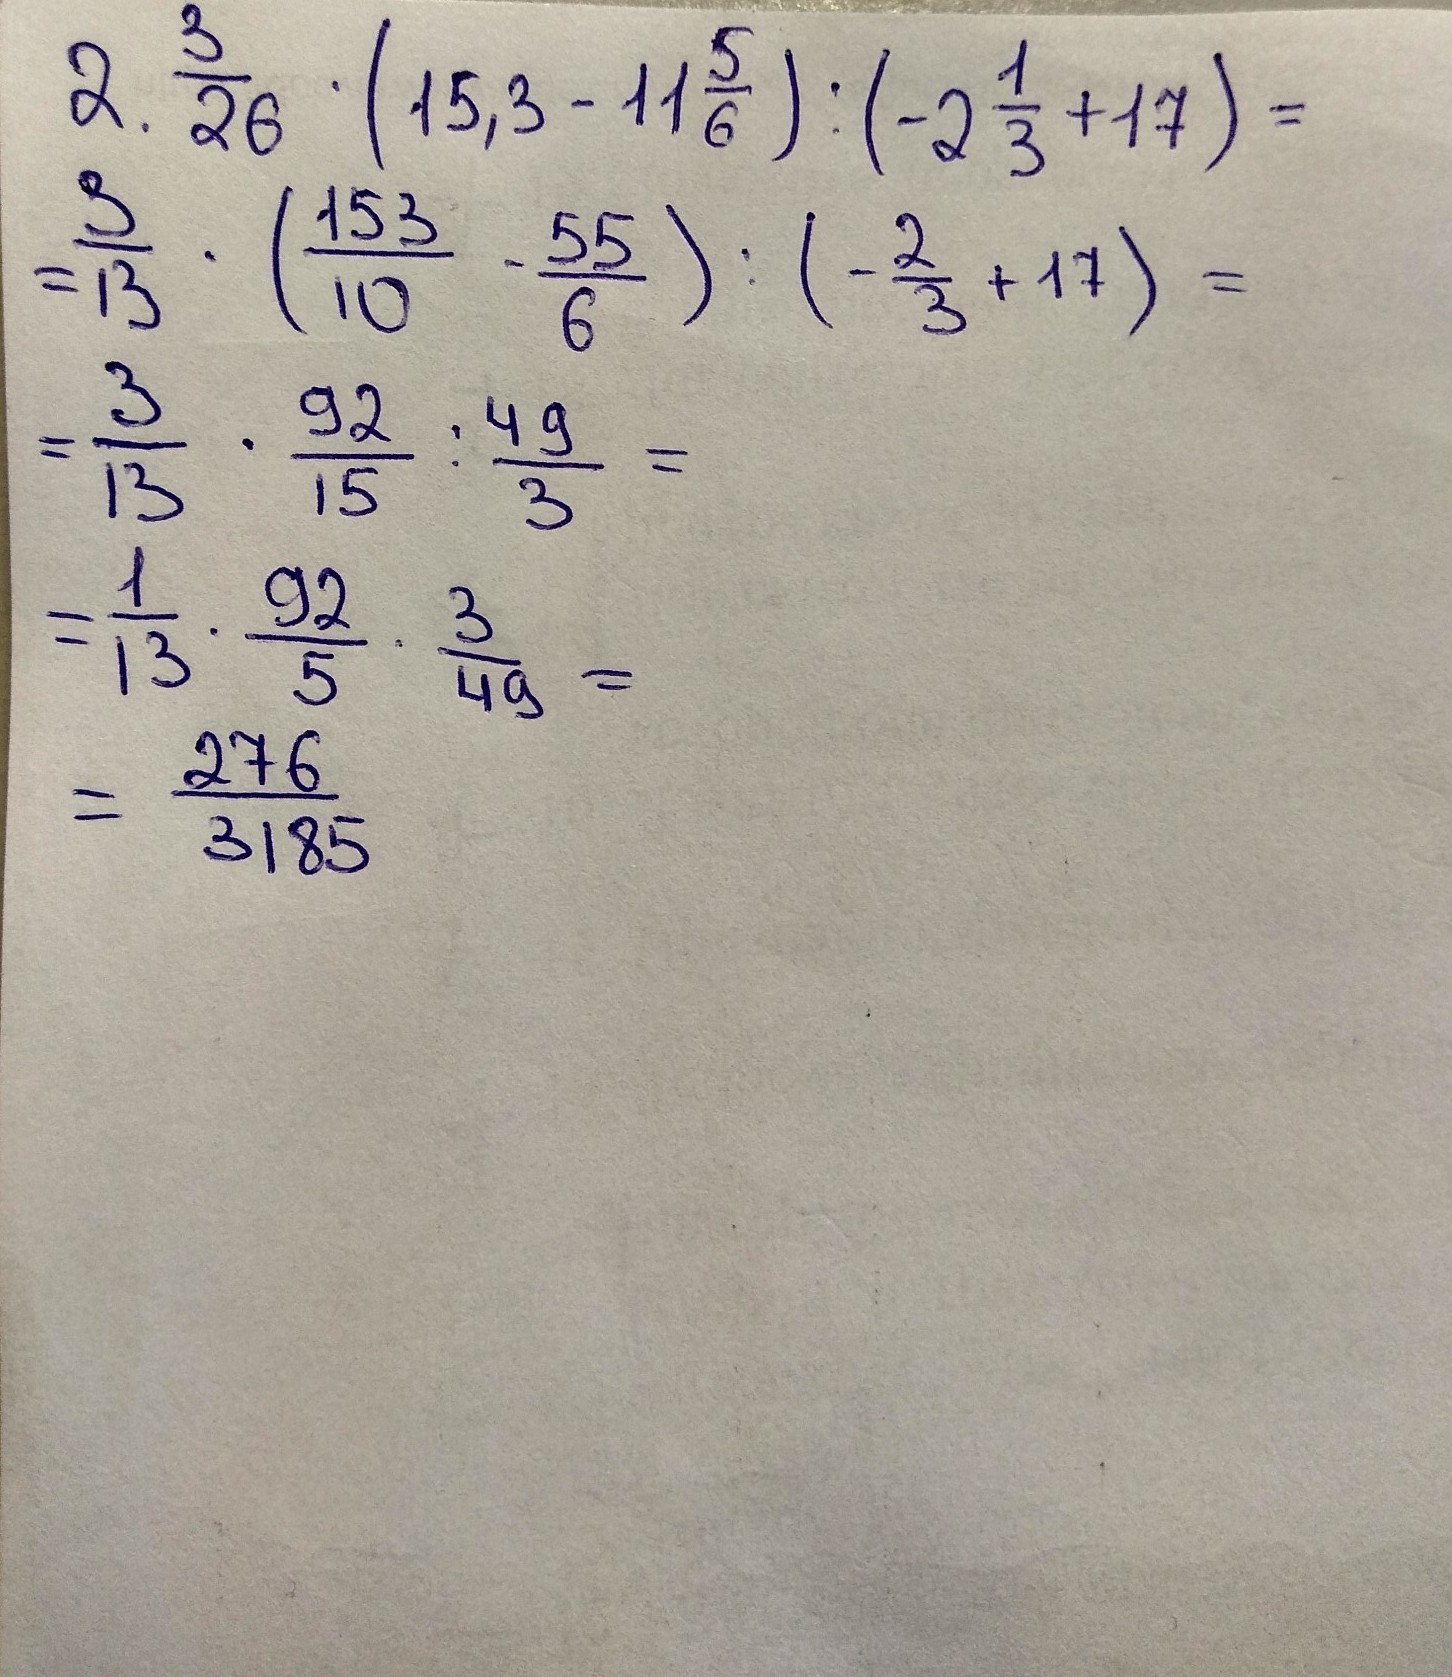 2. 3/26 · (15,3 - 11 5/6) : (-2 1/3 + 17) =
= 3/13 · (153/10 - 55/6) : (-2/3 + 17) =
= 3/13 · 92/15 : 49/3 =
= 1/13 · 92/5 · 3/49 =
= 276/3185